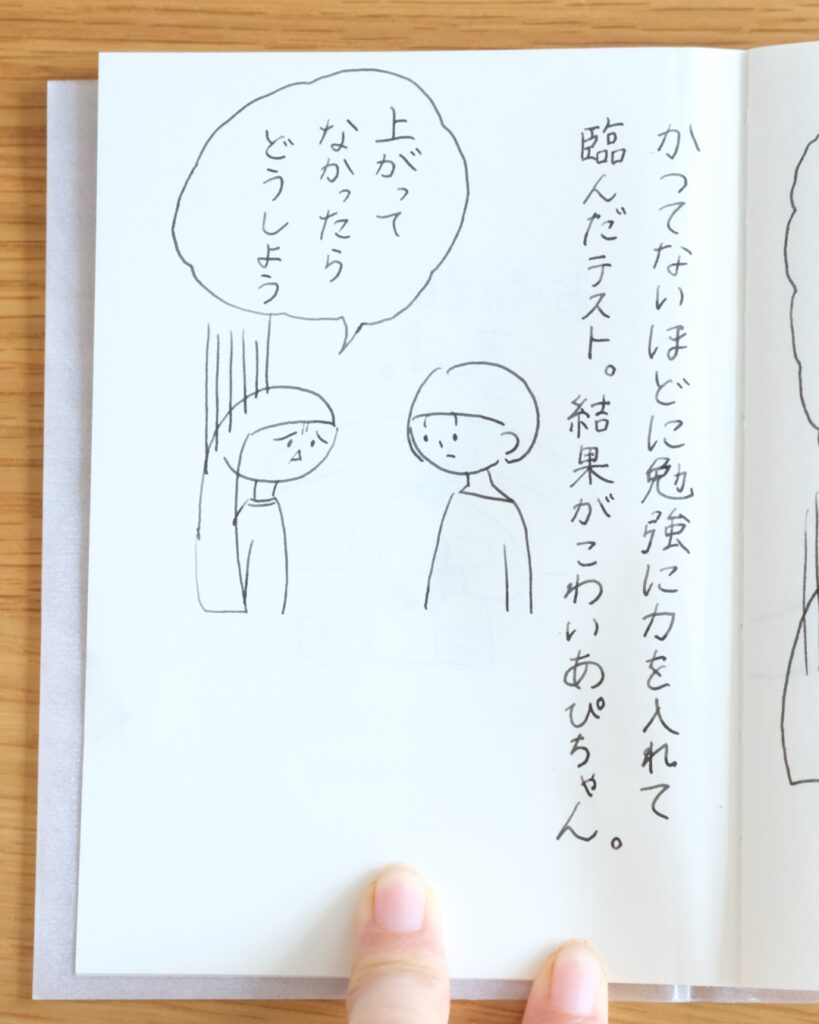 かつてないほどに勉強に力を入れて
臨んだテスト。結果がこわいあぴちゃん。
上がって
なかったら
どうしよう